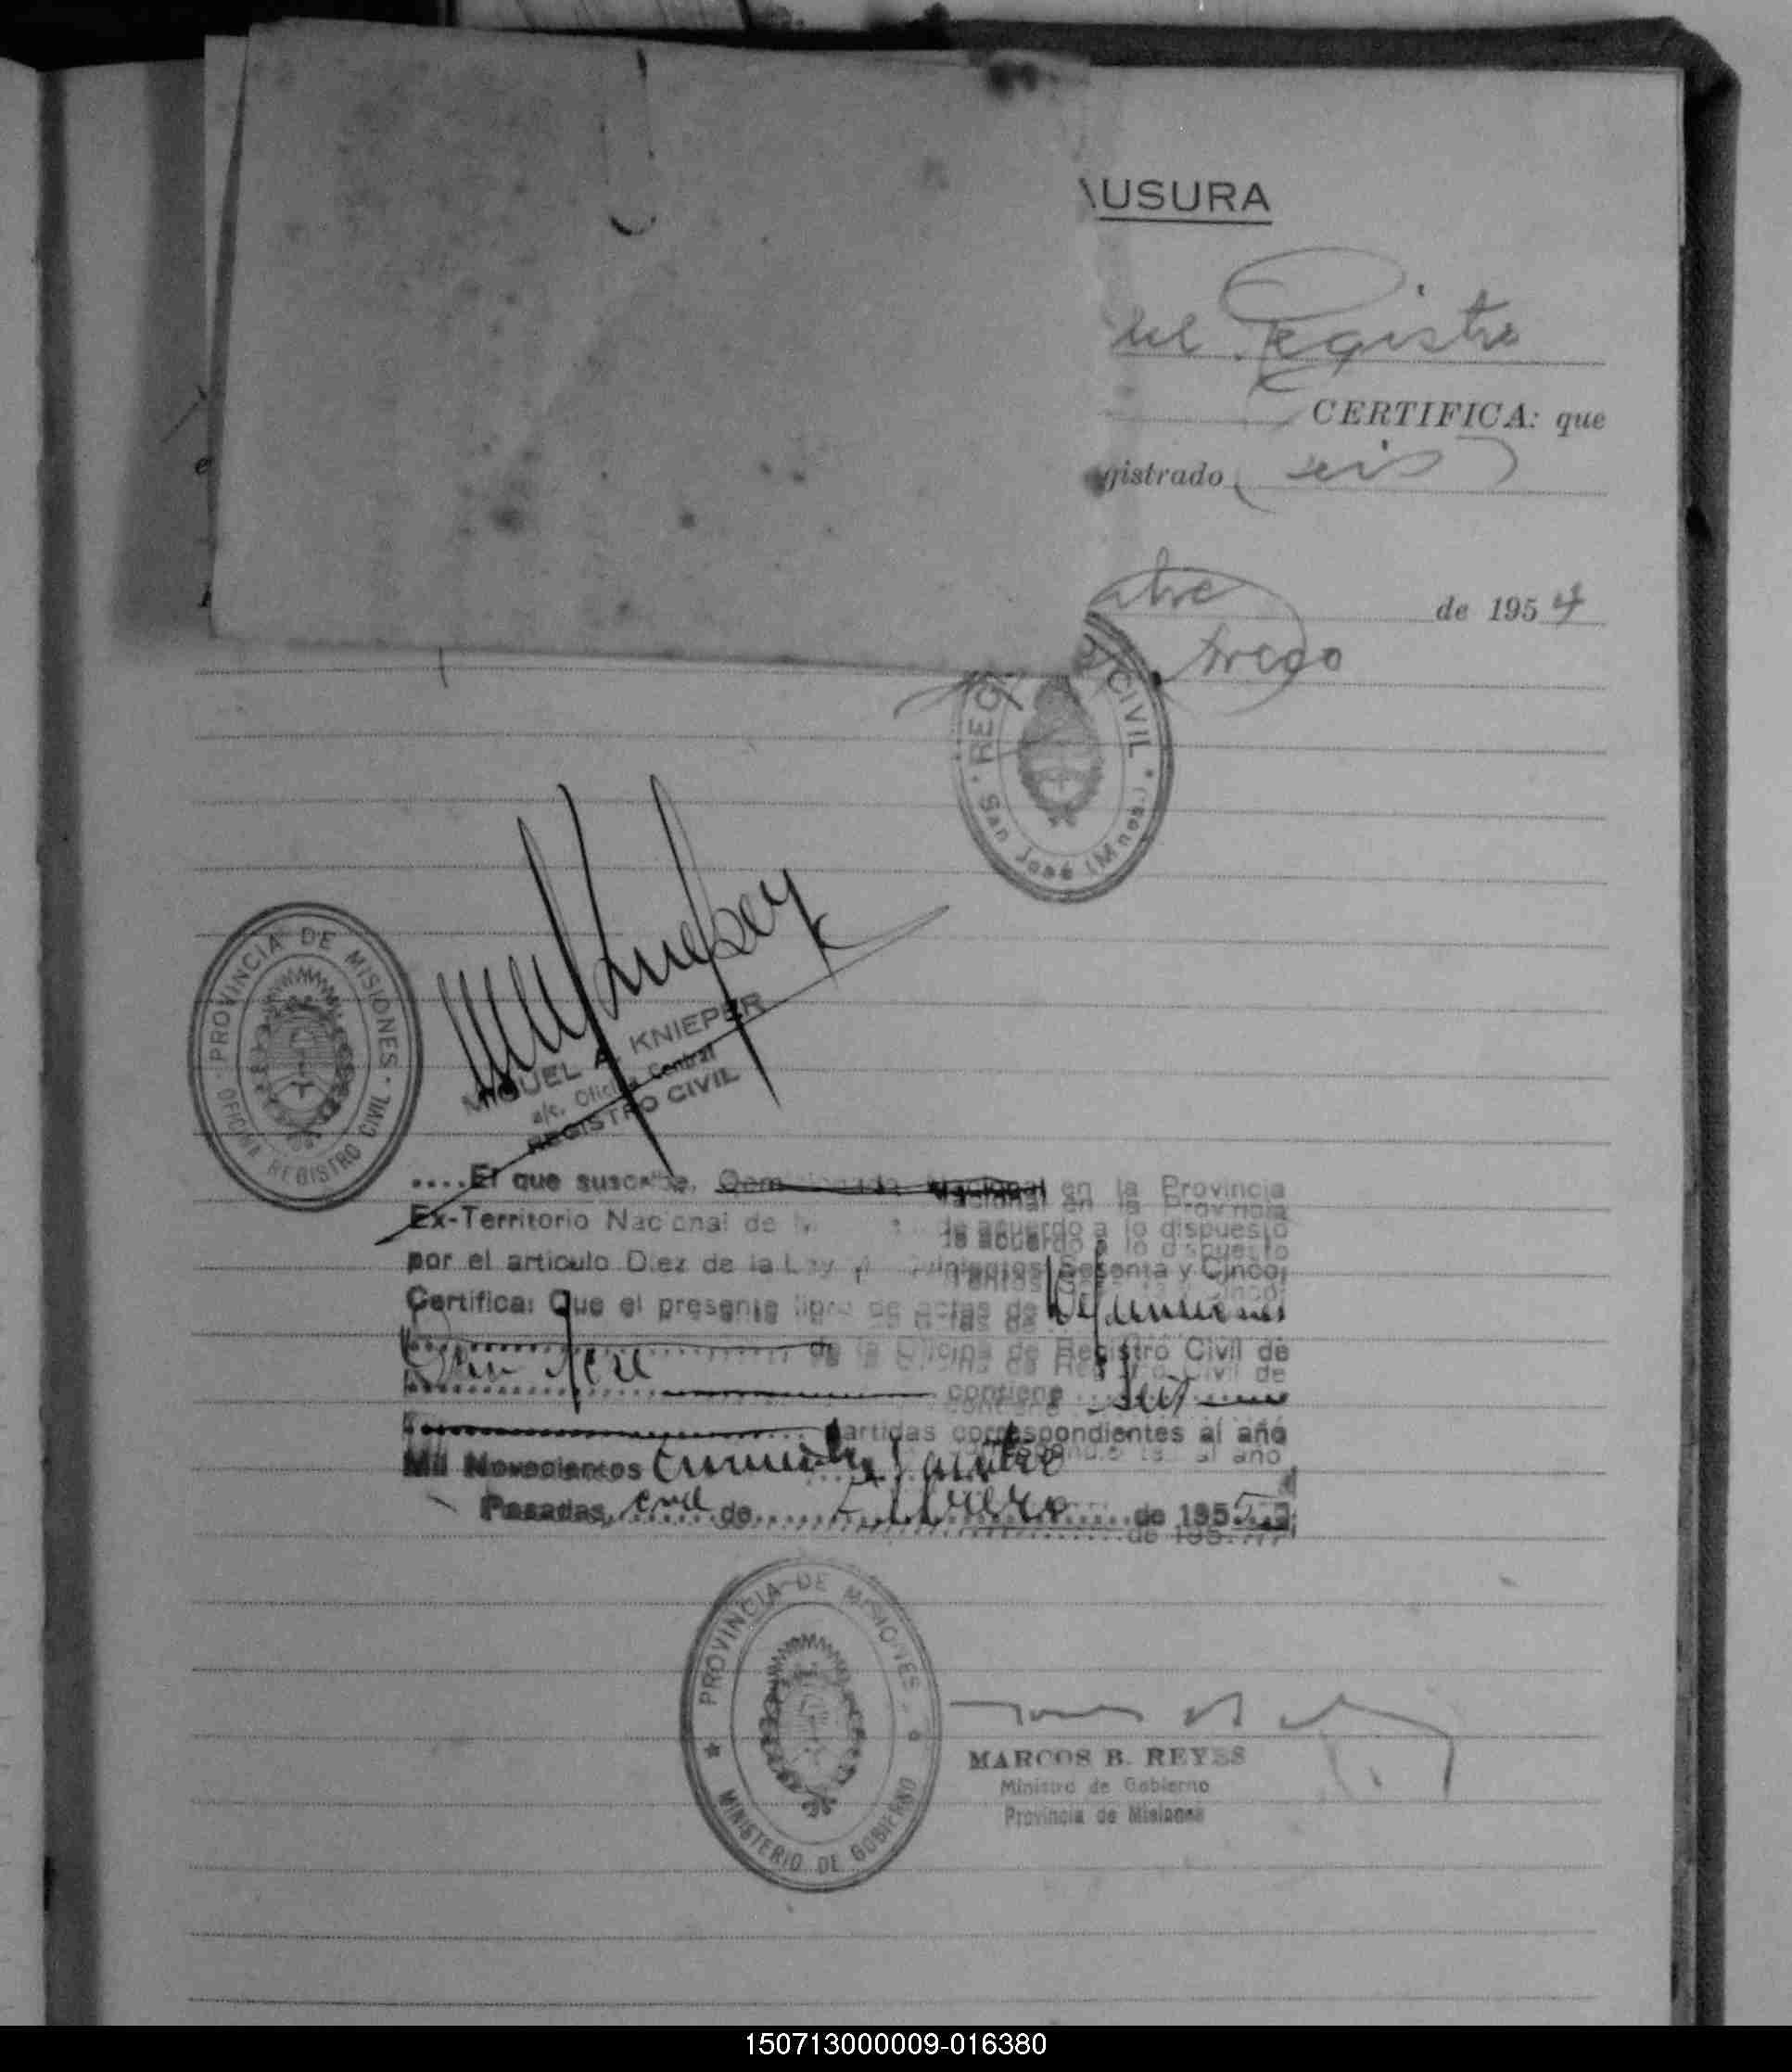 USURA
del Registro
CERTIFICA: que
gistrado seis
bre de 1954
REG CIVIL
San José (Mnes.)
PROVINCIA DE MISIONES
OFICINA REGISTRO CIVIL
MIGUEL A. KNIEPER
a/c. Oficina Central
REGISTRO CIVIL
....El que suscribe, Nacional en la Provincia
Ex-Territorio Nacional de de acuerdo a lo dispuesto
por el artículo Diez de la Ley Quinientos Sesenta y Cinco,
Certifica: Que el presente libro de actas de Defunciones
de la Oficina de Registro Civil de
San José contiene seis
partidas correspondientes al año
Mil Novecientos Cincuenta y cuatro
Posadas, de Febrero de 1955
PROVINCIA DE MISIONES
MINISTERIO DE GOBIERNO
MARCOS B. REYES
Ministro de Gobierno
Provincia de Misiones
150713000009-016380